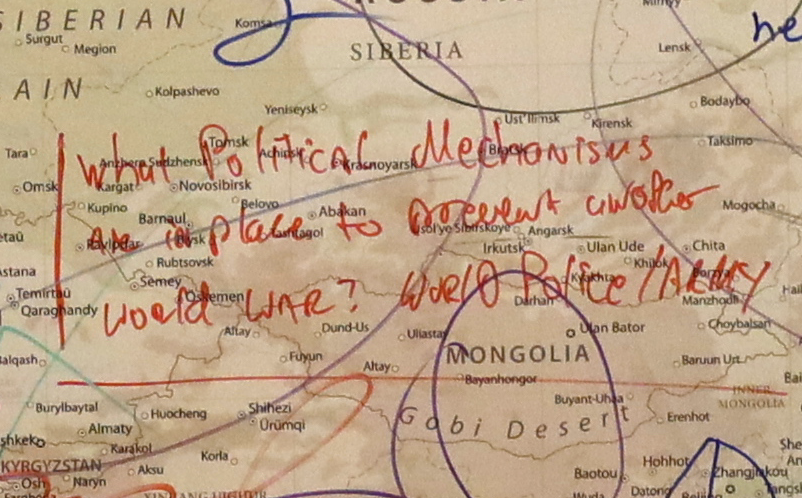 SIBERIAN
Komso
Surgut
Megion
SIBERIA
Lensk
he
AIN
Kolpashevo
Yeniseysk
Ust'Ilimsk
Kirensk
Bodaybo
Tara
Anzhero Sudzhensk
Tomsk
Achinsk
Krasnoyarsk
Bratsk
Taksimo
What Political Mechanisms
Omsk
Kargat
Novosibirsk
Kupino
Belovo
Abakan
Mogocha
Barnaul
are in place to prevent another
Pavlodar
Biysk
Tashtagol
Usol'ye Sibirskoye
Angarsk
Irkutsk
Ulan Ude
Chita
Rubtsovsk
Khilok
Astana
Semey
Kyakhta
Borzya
Temirtau
Oskemen
Darhan
Manzhouli
Qaraghandy
World WAR? World Police/Army
Altay
Dund-Us
Uliastay
Ulan Bator
Choybalsan
Balqash
Fuyun
Altay
MONGOLIA
Baruun Urt
Bayanhongor
INNER
MONGOLIA
Burylbaytal
Huocheng
Shihezi
Buyant-Uhaa
Erenhot
Almaty
Ürümqi
Gobi Desert
Karakol
Korla
Hohhot
KYRGYZSTAN
Aksu
Baotou
Zhangjiakou
Osh
Naryn
Datong